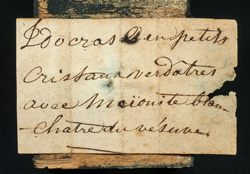 Idocras en petits
Cristaux verdatres
avec Meïonite blan-
-chatre du vésuve.